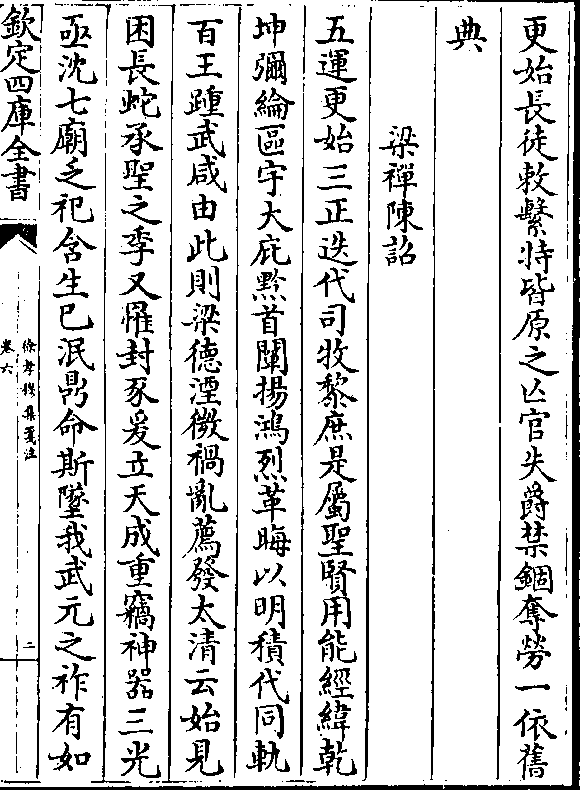 更始長徒敕繫特皆原之亡官失爵禁錮奪勞一依舊
典
梁禪陳詔
五運更始三正迭代司牧黎庶是屬聖賢用能經緯乾
坤彌綸區宇大庇黔首闡揚鴻烈革晦以明積代同軌
百王踵武咸由此則梁德湮微禍亂薦發太清云始見
困長蛇承聖之季又罹封豕爰立天成重竊神器三光
亟沈七廟乏祀含生已泯鼎命斯墜我武元之祚有如
欽定四庫全書
徐孝穆集箋注
卷六
二